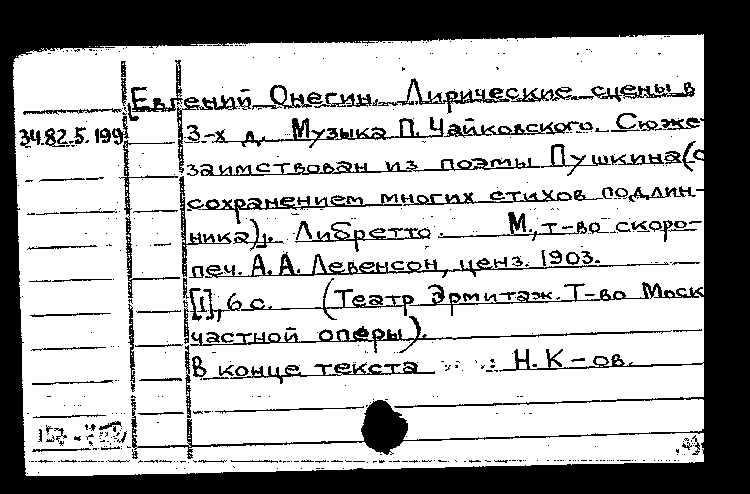 Евгений Онегин. Лирические сцены в
34.82.5.199 3-х д. Музыка П. Чайковского. Сюже
заимствован из поэмы Пушкина (с
сохранением многих стихов подлин-
ника). Либретто. М., т-во скоро-
печ. А. А. Левенсон, ценз. 1903.
[1], 6 с. (Театр Эрмитаж. Т-во Моск
частной оперы).
В конце текста : Н. К-ов.